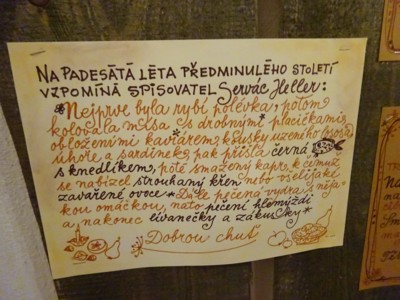 NA PADESÁTÁ LÉTA PŘEDMINULÉHO STOLETÍ
VZPOMÍNÁ SPISOVATEL Servác Heller:
*Nejprve byla rybí polévka, potom
kolovala mísa s drobnými placičkami,
obloženými kaviárem, kousky uzeného lososa,
úhoře a sardinek, pak přišla černá
s knedlíkem, poté smažený kapr, k čemuž
se nabízel strouhaný křen nebo oselijaké
zavařené ovoce. Dále pečená vydra s nija-
kou omáčkou, nato pečení hlemýždi
a nakonec lívanečky a zákusky*
Dobrou chuť